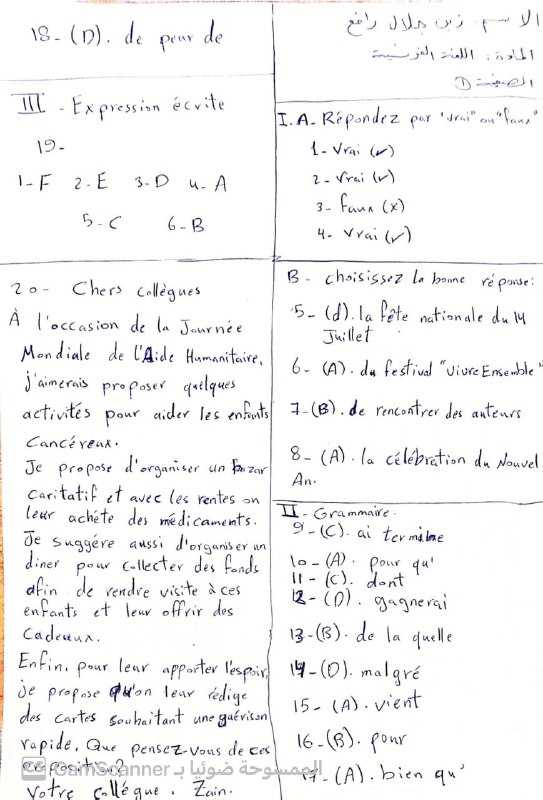 الاسم: زين جلال رافع
المادة: اللغة الفرنسية
الصفحة ①
I. A- Répondez par "vrai" ou "faux"
1- Vrai (✓)
2- Vrai (✓)
3- faux (x)
4- Vrai (✓)
B- choisissez la bonne réponse:
5- (d). la fête nationale du 14
Juillet
6- (A). du festival "vivre Ensemble"
7-(B). de rencontrer des auteurs
8- (A). la célébration du Nouvel
An.
II- Grammaire.
9-(C). ai terminé
10-(A). pour qu'
11-(C). dont
12-(D). gagnerai
13-(B). de la quelle
14-(D). malgré
15-(A). vient
16-(B). pour
17-(A). bien qu'
18-(D). de peur de
III - Expression écrite
19-
1-F 2-E 3-D 4-A
5-C 6-B
20- Chers collègues
À l'occasion de la Journée
Mondiale de l'Aide Humanitaire,
j'aimerais proposer quelques
activités pour aider les enfants
Cancéreux.
Je propose d'organiser un bazar
Caritatif et avec les rentes on
leur achète des médicaments.
Je suggére aussi d'organiser un
diner pour collecter des fonds
afin de rendre visite à ces
enfants et leur offrir des
Cadeaux.
Enfin, pour leur apporter l'espoir,
je propose qu'on leur rédige
des cartes souhaitant une guérison
rapide. Que pensez-vous de ces
Votre collégue. Zain.
الممسوحة ضوئيا بـ CamScanner